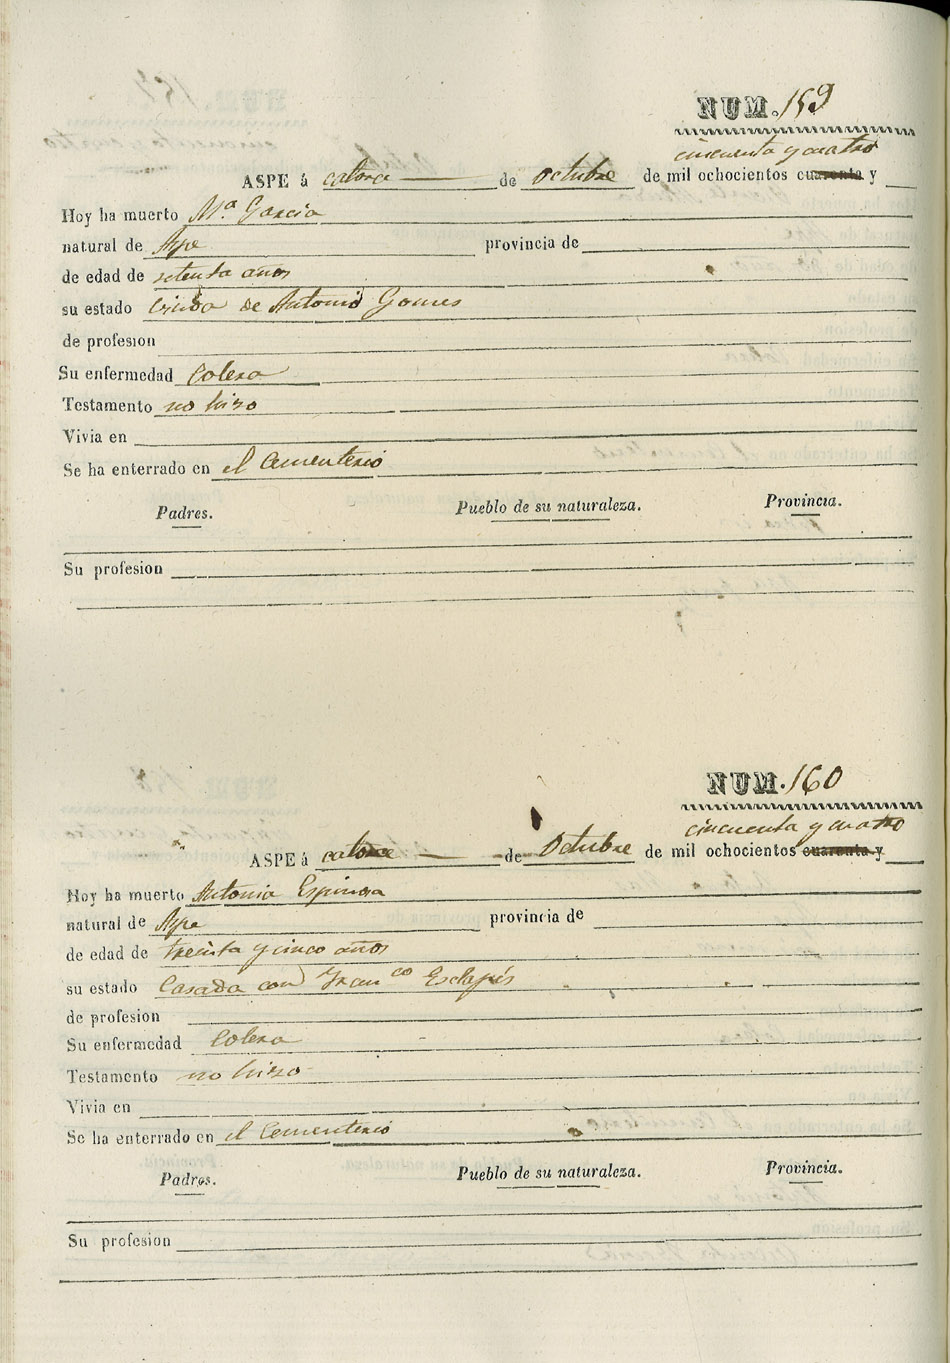 NUM. 159
cincuenta y cuatro
ASPE á catorce de Octubre de mil ochocientos cuarenta y
Hoy ha muerto Mª Garcia
natural de Aspe provincia de
de edad de setenta años
su estado Viuda de Antonio Gomes
de profesion
Su enfermedad Colera
Testamento no hizo
Vivia en
Se ha enterrado en el Cementerio
Padres. Pueblo de su naturaleza. Provincia.
Su profesion
NUM. 160
cincuenta y cuatro
ASPE á catorce de Octubre de mil ochocientos cuarenta y
Hoy ha muerto Antonia Espinosa
natural de Aspe provincia de
de edad de treinta y cinco años
su estado Casada con Franco Esclapés
de profesion
Su enfermedad Colera
Testamento no hizo
Vivia en
Se ha enterrado en el Cementerio
Padres. Pueblo de su naturaleza. Provincia.
Su profesion